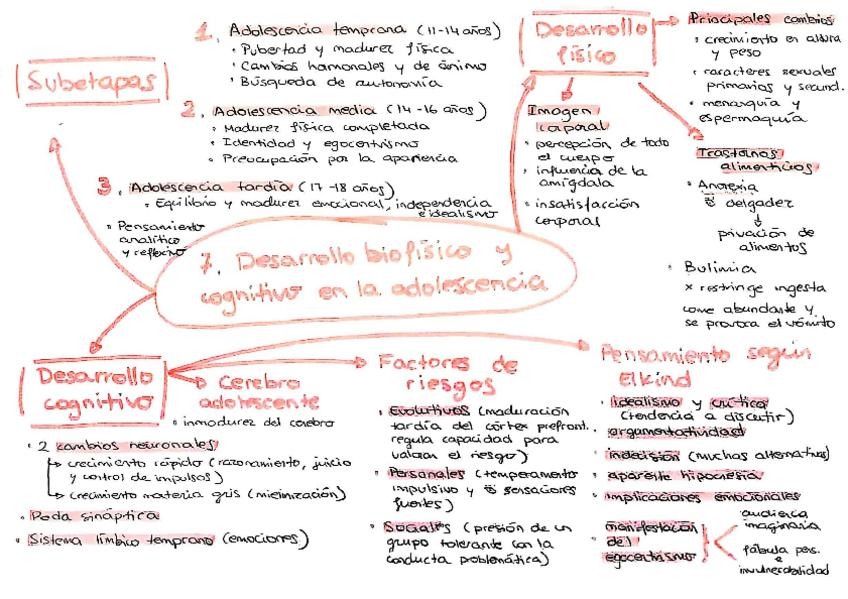 Subetapas
1. Adolescencia temprana (11-14 años)
• Pubertad y madurez física
• Cambios hormonales y de ánimo
• Búsqueda de autonomía
2. Adolescencia media (14-16 años)
• Madurez física completada
• Identidad y egocentrismo
• Preocupación por la apariencia
3. Adolescencia tardía (17-18 años)
• Equilibrio y madurez emocional, independencia
e idealismo
• Pensamiento
analítico
y reflexivo
Desarrollo
físico
Principales cambios
• crecimiento en altura
y peso
• caracteres sexuales
primarios y secund.
• menarquia y
espermaquia
Imagen
corporal
• percepción de todo
el cuerpo
• influencia de la
amígdala
• insatisfacción
corporal
Trastornos
alimenticios
• Anorexia
delgadez
↓
privación de
alimentos
• Bulimia
x restringe ingesta
come abundante y
se provoca el vómito
7. Desarrollo biofísico y
cognitivo en la adolescencia
Desarrollo
cognitivo
Cerebro
adolescente
• inmadurez del cerebro
• 2 cambios neuronales
crecimiento rápido (razonamiento, juicio
y control de impulsos)
crecimiento materia gris (mielinización)
• Poda sináptica
• Sistema límbico temprano (emociones)
Factores de
riesgos
• Evolutivos (maduración
tardía del córtex prefront.
regula capacidad para
valorar el riesgo)
• Personales (temperamento
impulsivo y sensaciones
fuertes)
• Sociales (presión de un
grupo tolerante con la
conducta problemática)
Pensamiento según
Elkind
• idealismo y crítica
(tendencia a discutir)
• argumentatividad
• indecisión (muchas alternativas)
• aparente hipocresía
• implicaciones emocionales
• manifestación
del
egocentrismo
audiencia
imaginaria
fábula pers.
e
invulnerabilidad